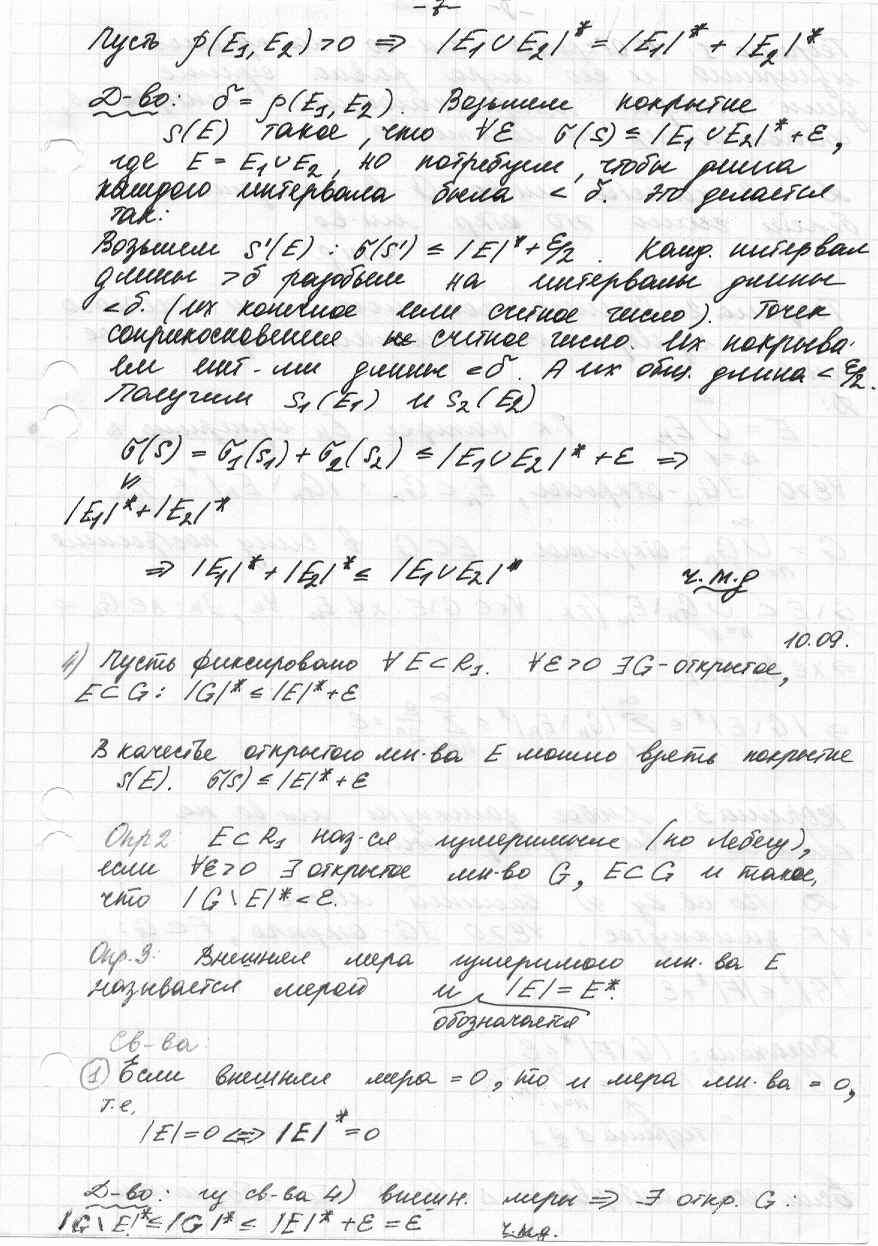 -7-
Пусть ρ(E₁, E₂) > 0 ⇒ |E₁∪E₂|* = |E₁|* + |E₂|*
Д-во: δ = ρ(E₁, E₂). Возьмем покрытие
S(E) такое, что ∀ε σ(S) ≤ |E₁∪E₂|* + ε,
где E = E₁∪E₂, но потребуем, чтобы длина
каждого интервала была < δ. Это делается
так:
Возьмем S'(E) : σ(S') ≤ |E|* + ε/2. Кажд. интервал
длины > δ разобьем на интервалы длины
< δ. (их конечное или счетное число). Точек
соприкосновения счетное число. Их покрыва-
ем инт-ми длины < δ. А их общ. длина < ε/2.
Получим S₁(E₁) и S₂(E₂)
σ(S) = σ₁(S₁) + σ₂(S₂) ≤ |E₁∪E₂|* + ε ⇒
∨/
|E₁|* + |E₂|*
⇒ |E₁|* + |E₂|* ≤ |E₁∪E₂|* ч.т.д
10.09.
4) Пусть фиксировано ∀ E⊂R₁. ∀ε>0 ∃G-открытое,
E⊂G: |G|* ≤ |E|* + ε
В качестве открытого мн-ва E можно взять покрытие
S(E). σ(S) ≤ |E|* + ε
Опр 2: E⊂R₁ наз-ся измеримым (по Лебегу),
если ∀ε>0 ∃ открытое мн-во G, E⊂G и такое,
что |G \ E|* < ε.
Опр. 3: Внешняя мера измеримого мн-ва E
называется мерой и |E| = E*.
обозначается
Св-ва:
① Если внешняя мера = 0, то и мера мн-ва = 0,
т.е.
|E| = 0 ⇔ |E|* = 0
Д-во: из св-ва 4) внешн. меры ⇒ ∃ откр. G :
|G \ E|* ≤ |G|* ≤ |E|* + ε = ε ч.т.д.